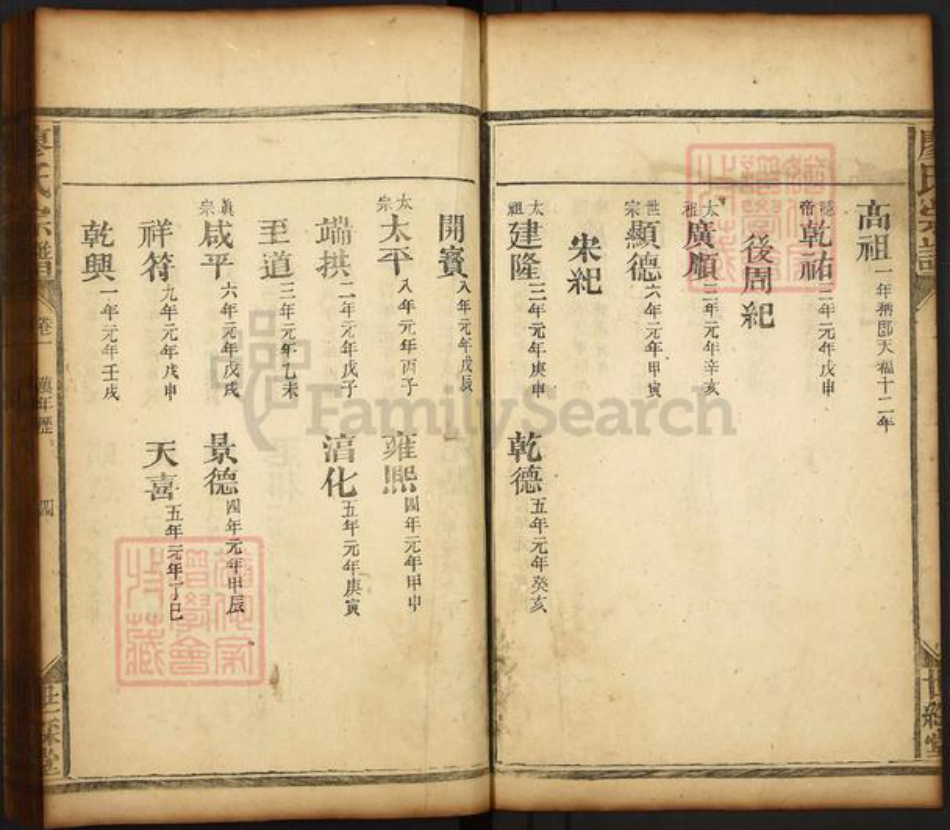 高祖一年稱卽天福十二年
隱帝乾祐三年元年戊申
後周紀
太祖廣順三年元年辛亥
世宗顯德六年元年甲寅
宋紀
太祖建隆三年元年庚申 乾德五年元年癸亥
開寶八年元年戊辰
太宗太平八年元年丙子 雍熙四年元年甲申
端拱二年元年戊子 淳化五年元年庚寅
至道三年元年乙未
眞宗咸平六年元年戊戌 景德四年元年甲辰
祥符九年元年戊申 天喜五年元年丁巳
乾興一年元年壬戌
廖氏宗譜 卷一 萬年歷 四
廖氏宗譜
世綵堂
FamilySearch